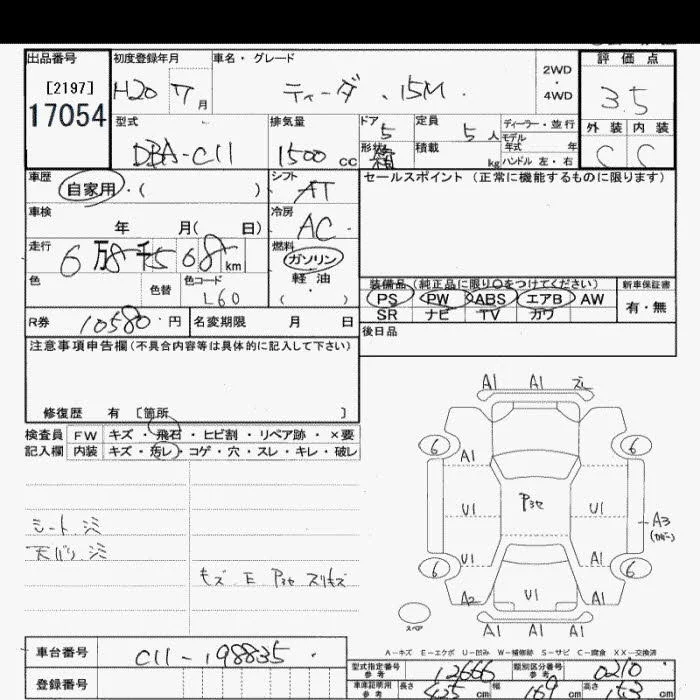 出品番号 初度登録年月 車名・グレード 評価点
[2197] H20 7月 ティーダ 、15M . 2WD・4WD 3.5
17054
型式 排気量 ドア 5 定員 5人 ディーラー・並行 外装 内装
DBA-C11 1500cc 形状 箱 積載 kg モデル年式 年 C C
ハンドル 左・右
車歴 自家用・( ) シフト AT セールスポイント(正常に機能するものに限ります)
車検 年 月( 日) 冷房 AC
走行 6万8千568km 燃料 ガソリン
軽油
・( )
色 色替 色コード L60 装備品(純正品に限り○をつけてください) 新車保証書
PS PW ABS エアB AW 有・無
SR ナビ TV カワ
R券 10580・円 名変期限 月 日 後日品
注意事項申告欄(不具合内容等は具体的に記入して下さい)
修復歴 有 〔箇所 〕
検査員 FW キズ・飛石・ヒビ割・リペア跡・×要
記入欄 内装 キズ・汚レ・コゲ・穴・スレ・キレ・破レ
シート シミ
天バリ シミ
キズ E Pヨセ スリキズ
A1 A1 ズレ
6 6
A1
Pヨセ
U1 U1
A3
(カバー)
U1 A1
6 6
A2 U1 A1
スペア
A1 A1 A1
A-キズ E-エクボ U-凹み W-補修跡 S-サビ C-腐食 XX-交換済
車台番号 C11-198835
登録番号
型式指定番号 参考 12666 類別区分番号 参考 0210
車庫証明用 参考 長さ 425cm 幅 169cm 高さ 153cm